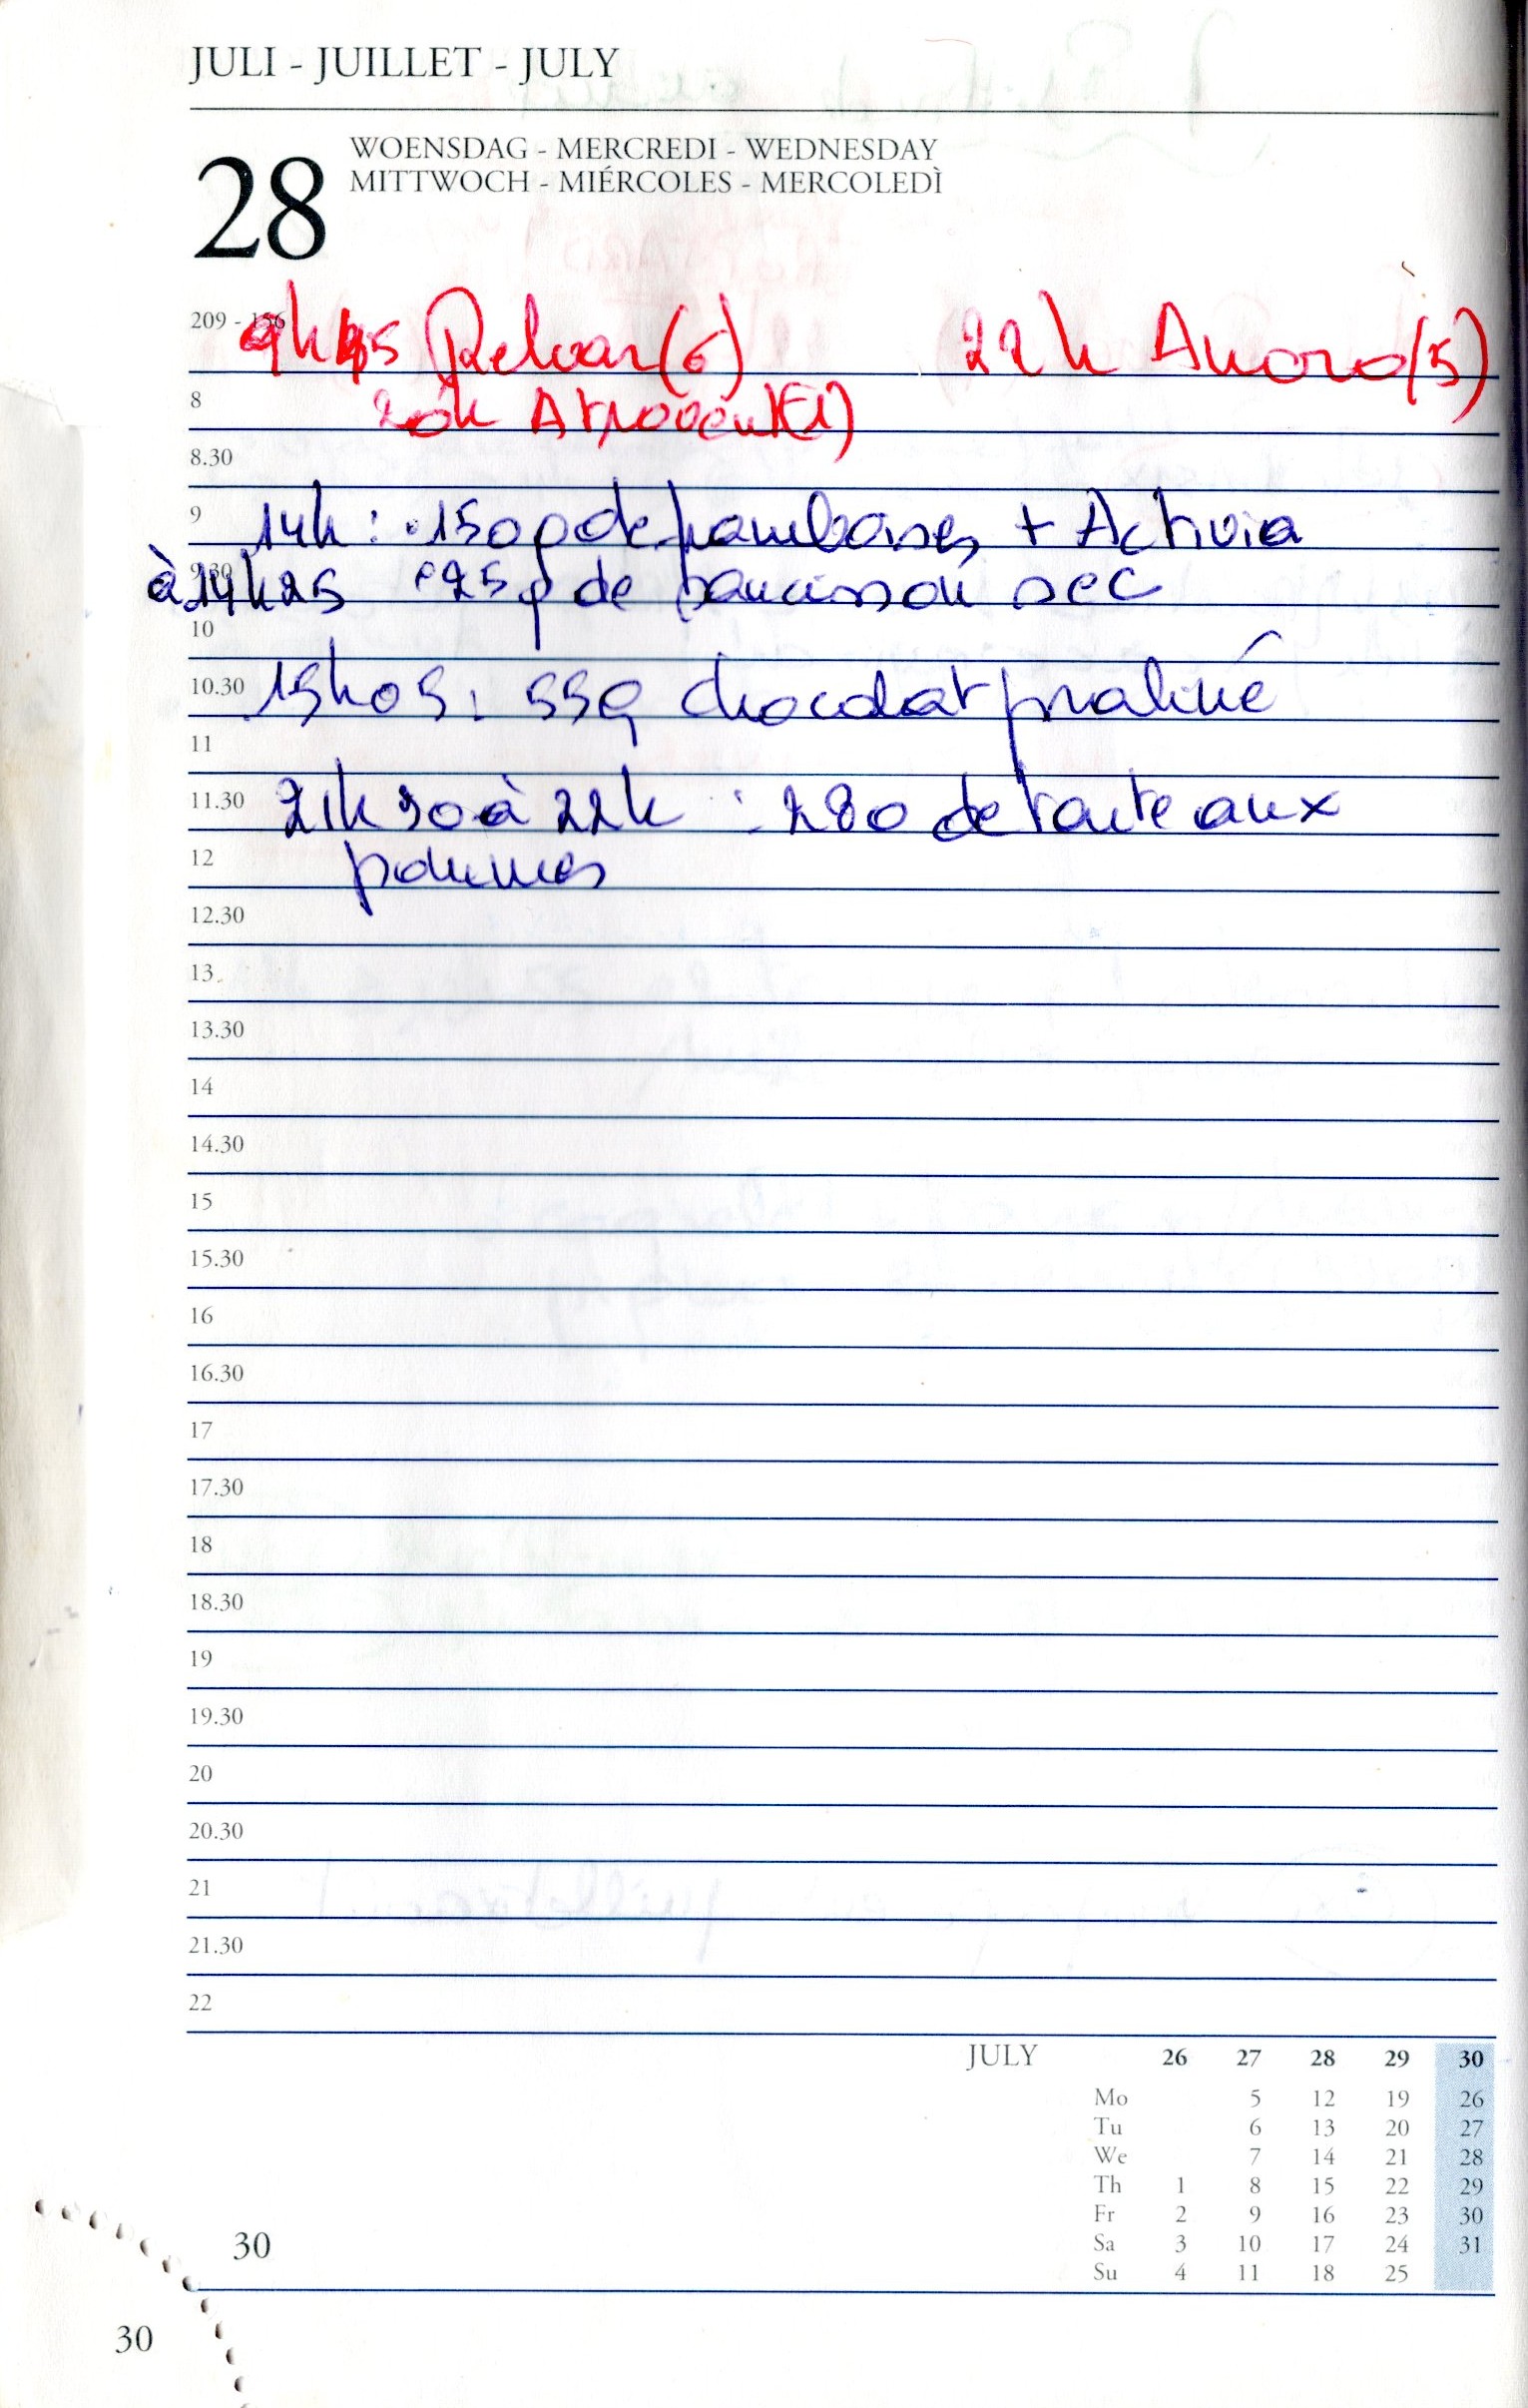 JULI - JUILLET - JULY
28
WOENSDAG - MERCREDI - WEDNESDAY
MITTWOCH - MIÉRCOLES - MERCOLEDÌ
209 - 156
9h45 Relvar (6) 22h Anoro (5)
8
20h Atrovent (1)
8.30
9
14h : 150g de framboises + Activia
9.30
à 14h25 25g de saucisson sec
10
10.30
15h05 : 55g chocolat praliné
11
11.30
21h30 à 22h : 280 de tarte aux
12
pommes
12.30
13
13.30
14
14.30
15
15.30
16
16.30
17
17.30
18
18.30
19
19.30
20
20.30
21
21.30
22
JULY 26 27 28 29 30
Mo 5 12 19 26
Tu 6 13 20 27
We 7 14 21 28
Th 1 8 15 22 29
Fr 2 9 16 23 30
Sa 3 10 17 24 31
Su 4 11 18 25
30
30